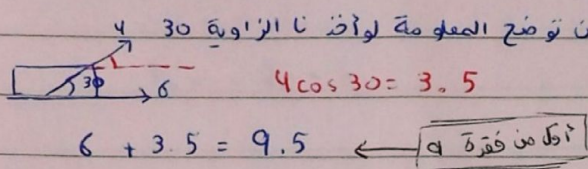 توضح المعلومة لو أخذنا الزاوية 30
4
30
6
4 cos 30 = 3.5
6 + 3.5 = 9.5 ← أول من فقرة a